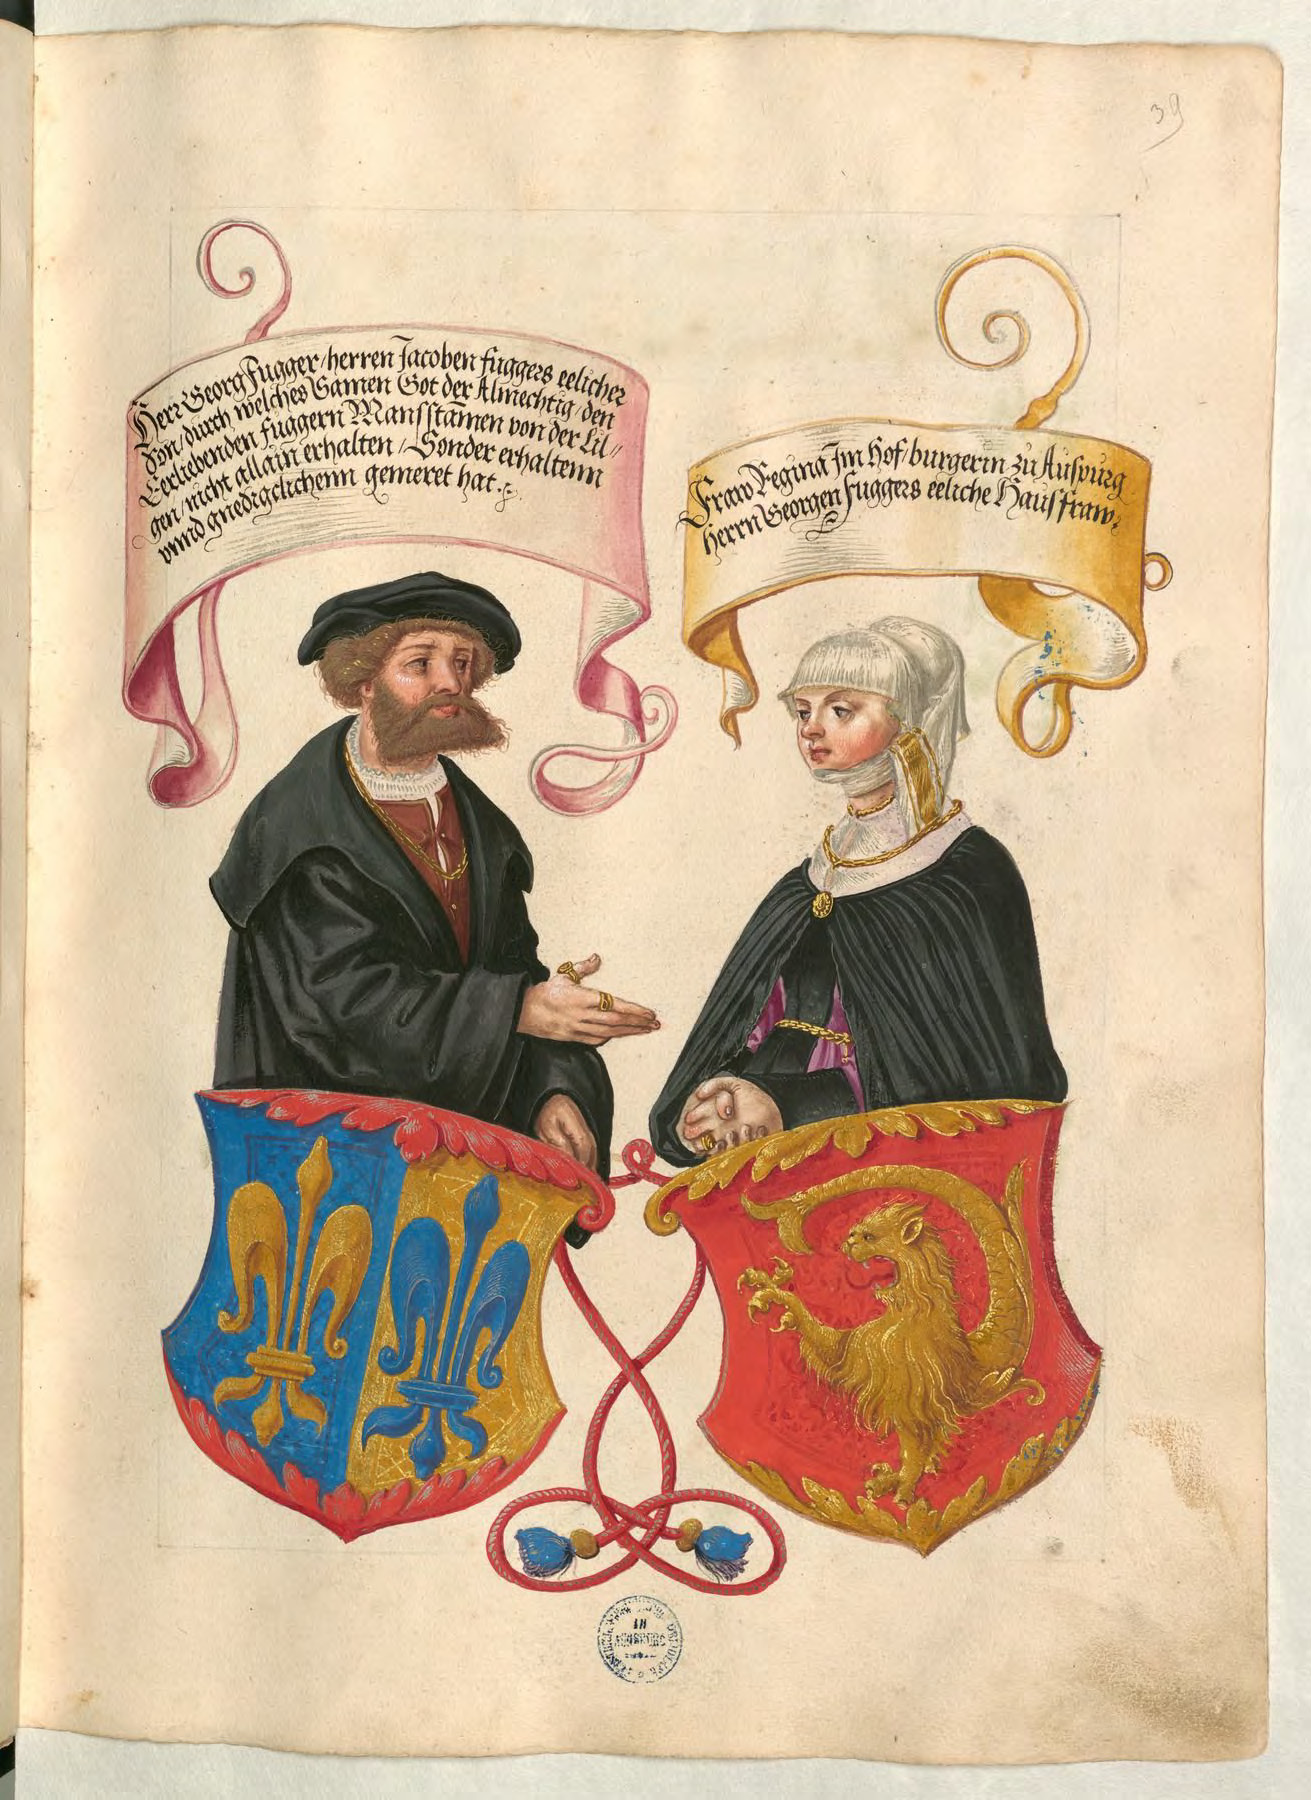 39
Herr Georg Fugger / herren Jacoben fuggers eelicher
Son / durch welches Samen Got der Almechtig / den
Eerliebenden fuggern Mansstamen von der Lil//
gen / nicht allain erhalten / Sonder erhaltenn
vnnd gnedigclichenn gemeret hat.
Fraw Regina Im Hof / burgerin zu Auspurg
Herrn Georgen Fuggers eeliche Hausfraw.
IN